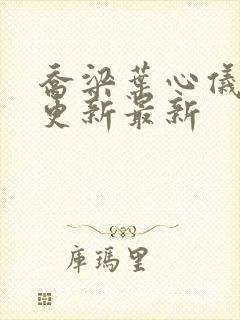 乔梁葉心儀
更新最新
庫瑪里